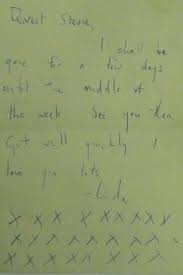 Dearest Stevie,
I shall be
gone for a few days
until the middle of
the week See you then
Get well quickly I
love you lots
- Linda
X X X X X X X X X
X X X X X X X X
X X X X X X X